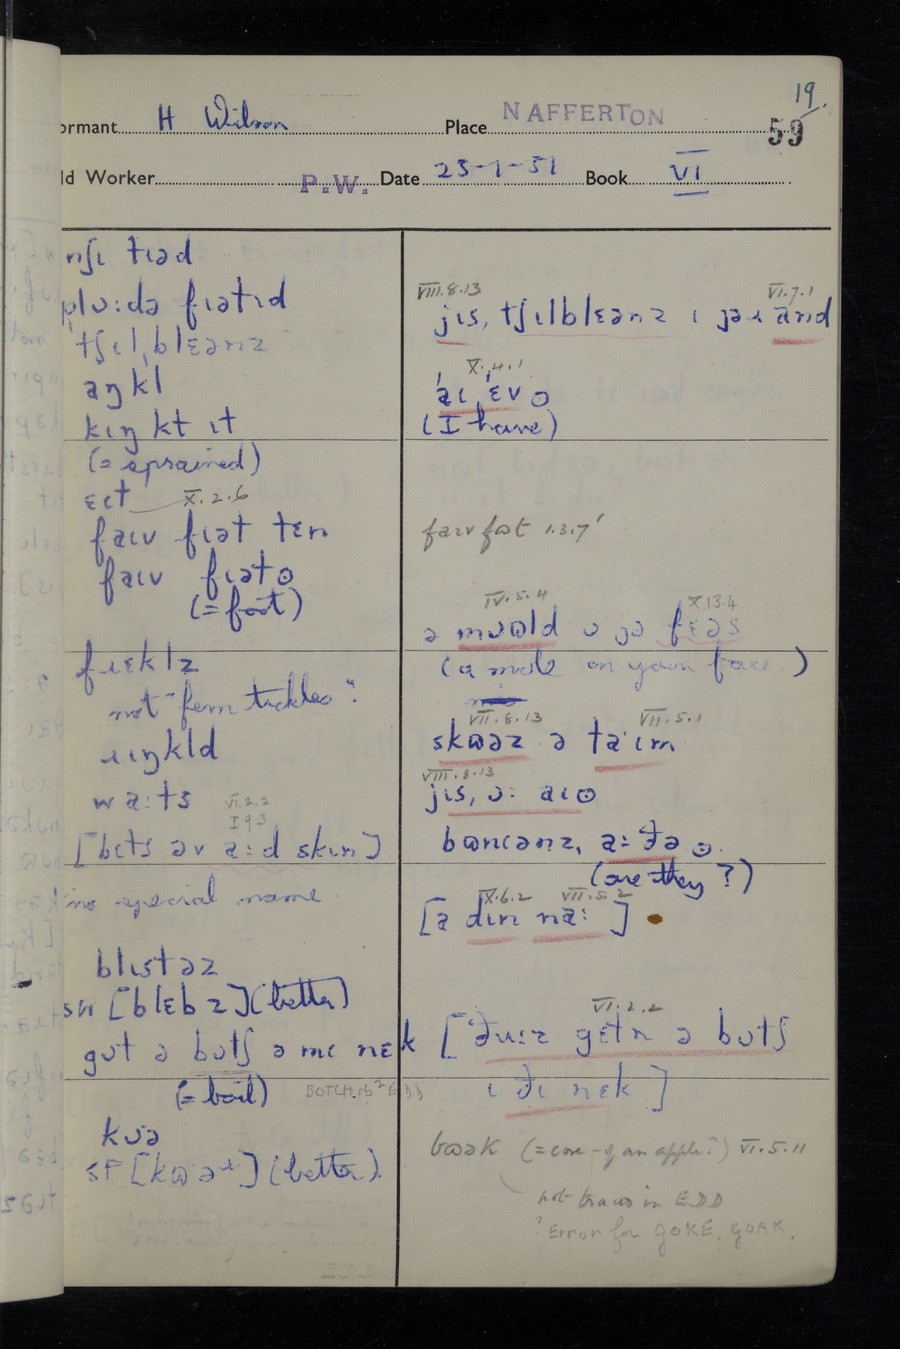 19.
ormant H Wilson Place NAFFERTON 59
ld Worker P.W. Date 23-1-51 Book VI
nʃɪ tɪəd
plʊ:də fɪətɪd
tʃɪlˌblɛənz
aŋkl
kɪŋkt ɪt
(= sprained)
ɛɪt X.2.6
faɪv fɪət tɛn
faɪv fɪət
(= foot)
fɹɛklz
not "fern tickles".
ɹɪŋkld
wa:ts VI.2.2
[bɪts əv a:d skɪn]
no special name
blɪstəz
SH [blɛbz] (better)
gɒt ə bʊtʃ ə mɪ nɛk
(= boil) BOTCH sb² E.D.D
kʊə
SF [kɒəɹ] (better).
VIII.8.13 VI.7.1
jɪs, tʃɪlblɛənz ɪ jəɹ and
X.4.1
aɪ ɛv
(I have)
faɪv fɒt 1.3.7'
IV.5.4 X.13.4
ə mʊɒld ʊ jə fɛəs
(a mole on your face.)
VII.8.13 VII.5.1
skwəz ə taɪm
VIII.8.13
jɪs, ɔ: aɪ
bɒnɪənz, a: ðə
(are they?)
IX.6.2 VII.5.2
[a dɪn na: ]
VI.2.2
[ ðu:z gɛtn ə bʊtʃ
ɪ ðɪ nɛk ]
(= core of an apple?) VI.5.11
not traced in EDD
? Error for GOKE, GOAK.